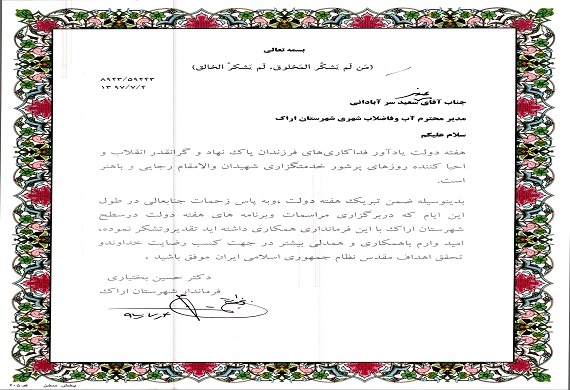 بسمه تعالی
(مَن لَم یَشکُر المَخلوق، لَم یَشکرُ الخالق)
۸۹۲۳/۵۹۲۴۳
۱۳۹۷/۷/۲
جناب آقای سعید سرآبادانی
مدیر محترم آب وفاضلاب شهری شهرستان اراک
سلام علیکم
هفته دولت یادآور فداکاری‌های فرزندان پاک نهاد و گرانقدر انقلاب و
احیا کننده روزهای پرشور خدمتگزاری شهیدان والامقام رجایی و باهنر
است.
بدینوسیله ضمن تبریک هفته دولت ،وبه پاس زحمات جنابعالی در طول
این ایام که دربرگزاری مراسمات وبرنامه های هفته دولت درسطح
شهرستان اراک با این فرمانداری همکاری داشته اید تقدیروتشکر نموده،
امید وارم باهمکاری و همدلی بیشتر در جهت کسب رضایت خداوندو
تحقق اهداف مقدس نظام جمهوری اسلامی ایران موفق باشید .
دکتر حسین بختیاری
فرماندار شهرستان اراک